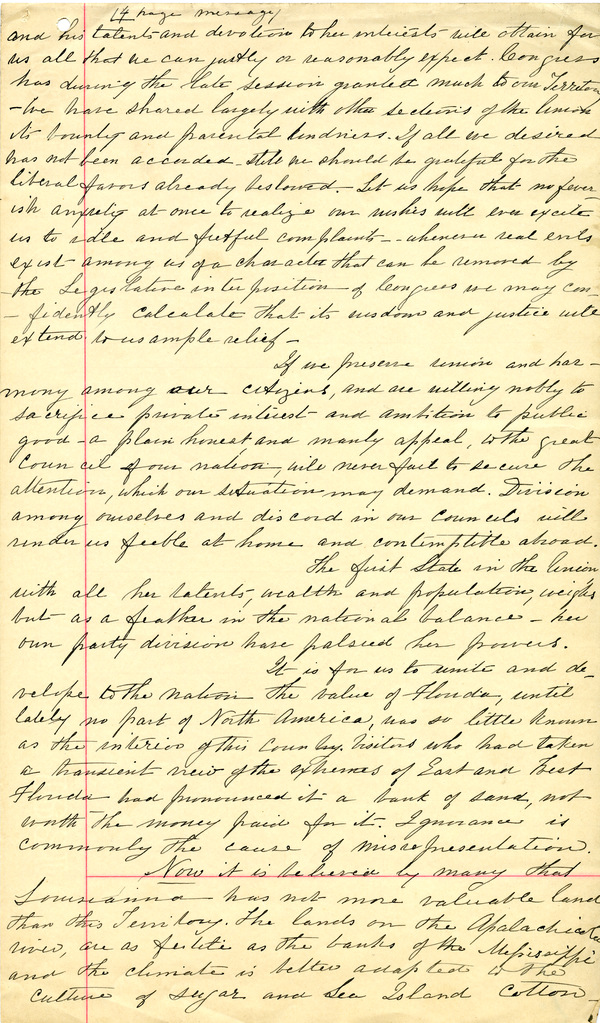 (4 page message)
and his talents and devotion to her interests will obtain for
us all that we can justly or reasonably expect. Congress
has during the late session granted much to our Territory
- We have shared largely with other sections of the Union
its bounty and parental kindness. If all we desired
has not been accorded - still we should be grateful for the
liberal favors already bestowed - Let us hope that no fever-
ish anxiety at once to realize our wishes will ever excite
us to idle and fretful complaints - - whenever real evils
exist among us of a character that can be removed by
- the Legislative interposition - of Congress we may con-
- fidently calculate that its wisdom and justice will
extend to us ample relief -
If we preserve union and har-
mony among our citizens, and are willing nobly to
sacrifice private interest and ambition to public
good - a plain honest and manly appeal, to the great
Council of our nation, will never fail to secure the
attention, which our situation may demand. Division
among ourselves and discord in our Councils will
render us feeble at home and contemptible abroad.
The first State in the Union,
with all her talents, wealth and population, weighs
but as a feather in the national balance - her
own party division have palsied her powers.
It is for us to unite and de-
velope to the nation the value of Florida, until
lately no part of North America, was so little known
as the interior of this Country. Visitors who had taken
a transient view of the extremes of East and West
Florida had pronounced it a bank of sand, not
worth the money paid for it. Ignorance is
commonly the cause of misrepresentation.
Now it is believed by many that
Louisianna has not more valuable land
than this Territory. The lands on the Apalachicola
river, are as fertile as the banks of the Mississippi
and the climate is better adapted to the
culture of sugar and Sea Island Cotton -